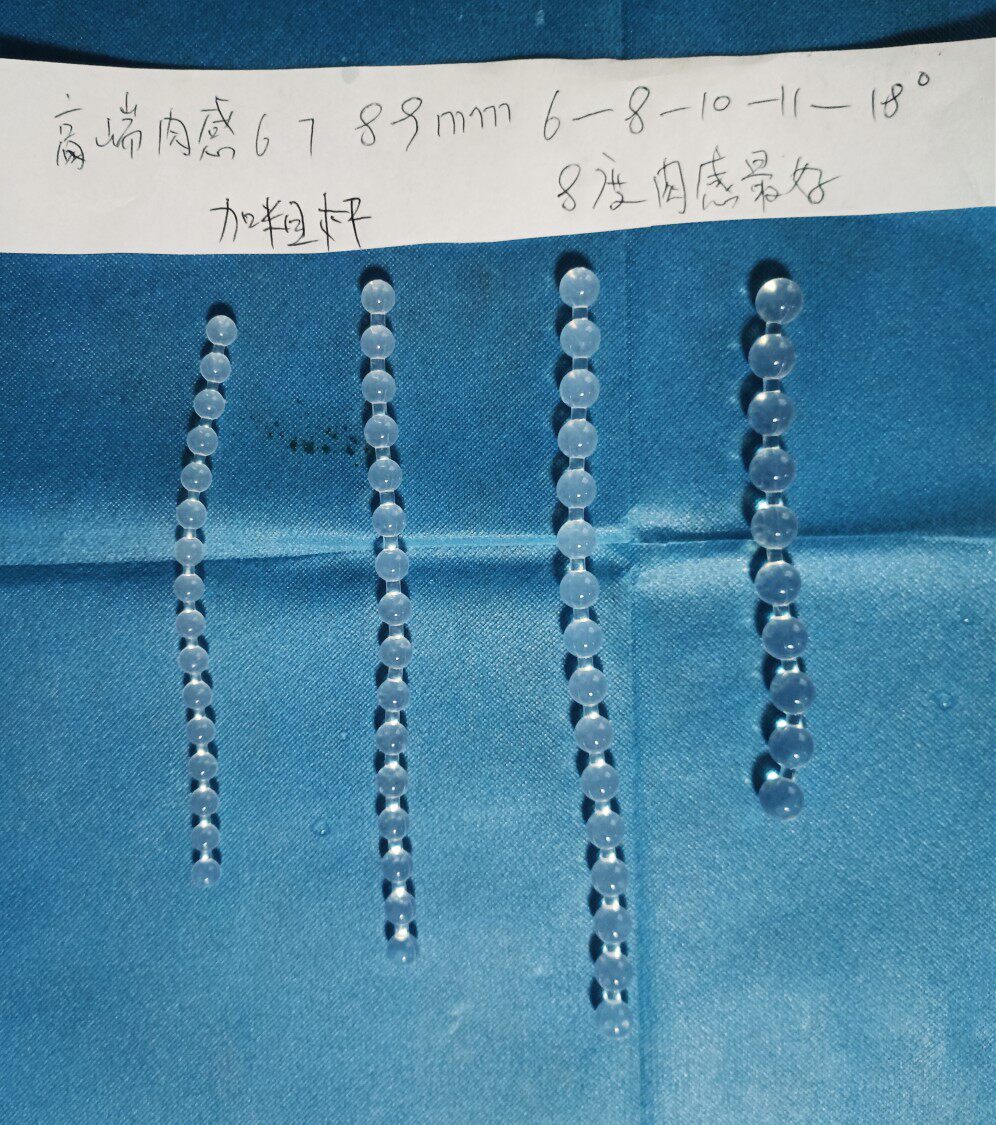 高端肉感 6 7 8 9 mm 6-8-10-11-18°
加粗杆 8度肉感最好